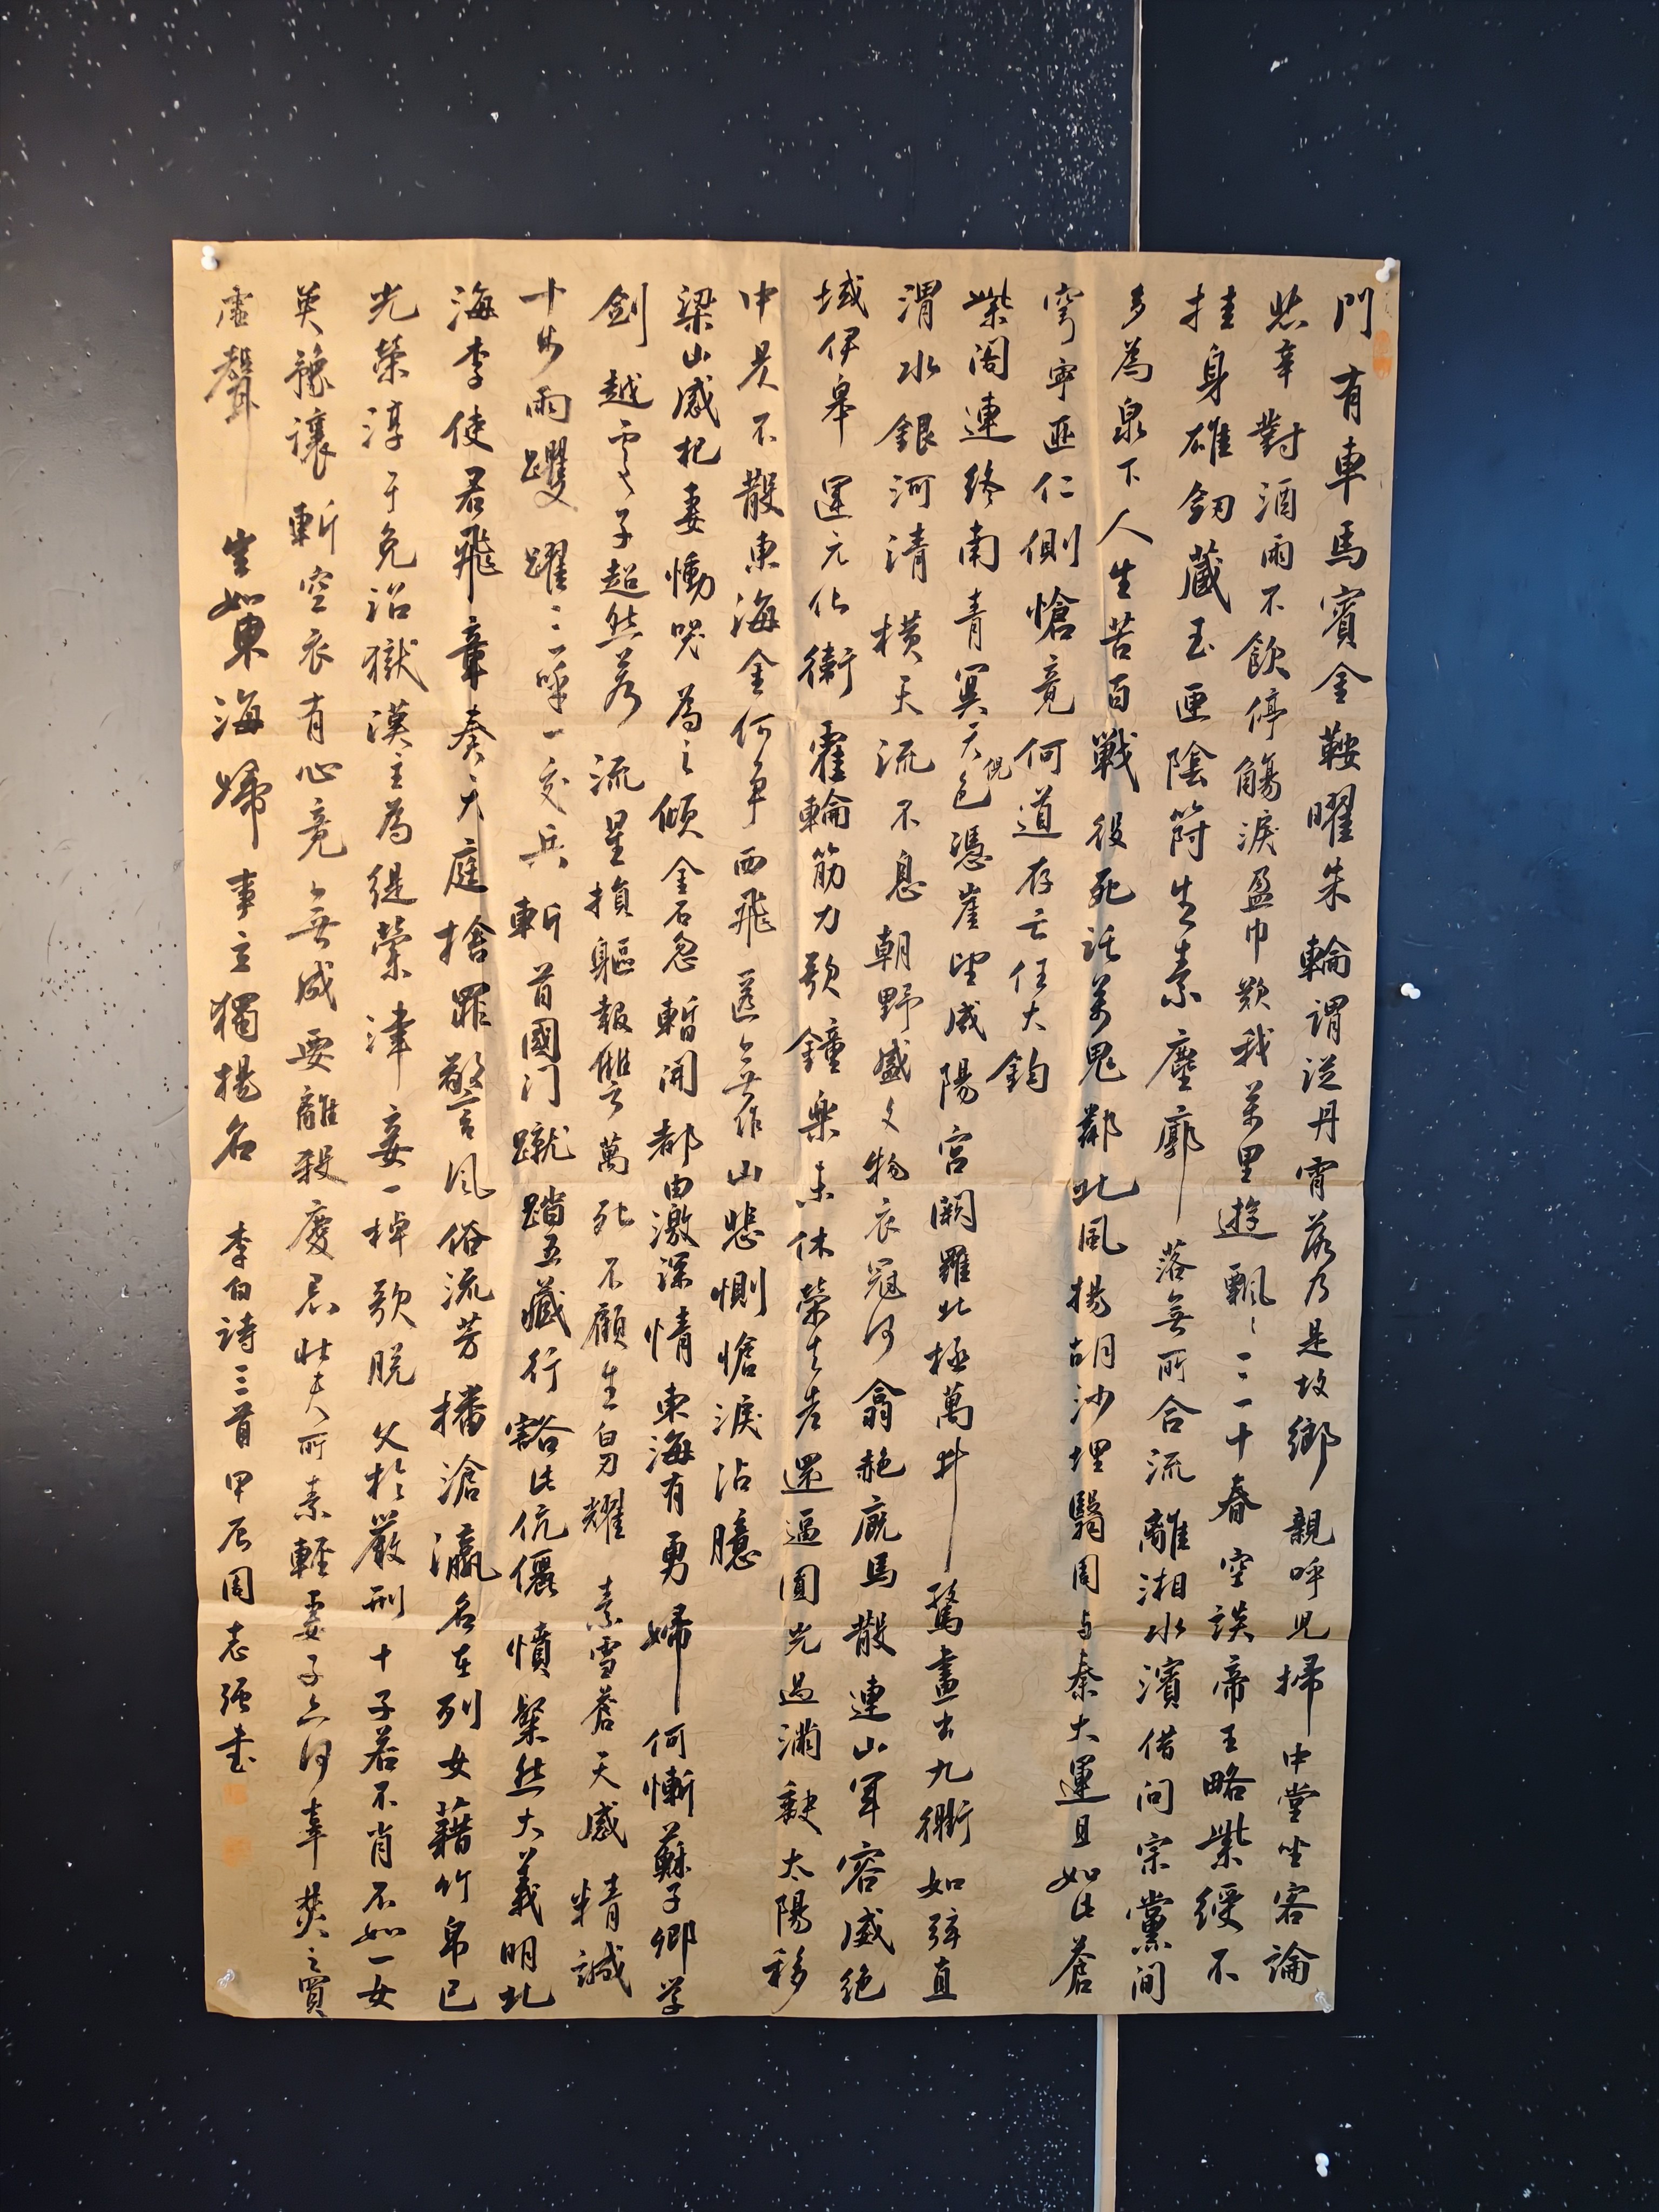 門有車馬賓金鞍曜朱輪謂從丹霄落乃是故鄉親呼兒掃中堂坐客論
悲辛對酒兩不飲停觴淚盈巾歎我萬里遊飄飄三十春空談帝王略紫綬不
挂身雄劍藏玉匣陰符生素塵廓落無所合流離湘水濱借問宗黨間
多為泉下人生苦百戰役死託萬鬼鄰北風揚胡沙埋翳周與秦大運且如此蒼
穹寧匪仁惻愴竟何道存亡任大鈞
紫閣連終南青冥天倪色憑崖望咸陽宮闕羅北極萬井驚畫出九衢如弦直
渭水銀河清橫天流不息朝野盛文物衣冠何翕赩廄馬散連山軍容威絕
域伊皋運元化衛霍輪筋力歌鐘樂未休榮去老還逼圓光過滿缺太陽移
中昃不散東海金何爭西飛匿無作牛山悲惻愴淚沾臆
梁山感杞妻慟哭為之傾金石忽暫開都由激深情東海有勇婦何慚蘇子卿學
劍越處子超然若流星損軀報夫讐萬死不顧生白刃耀素雪蒼天感精誠
十步兩躩躍三呼一交兵斬首國門蹴踏五藏行豁此伉儷憤粲然大義明北
海李使君飛章奏天庭捨罪警風俗流芳播滄瀛名在列女藉竹帛已
光榮淳于免詔獄漢主為緹縈津妾一棹歌脫父於嚴刑十子若不肖不如一女
英豫讓斬空衣有心竟無成要離殺慶忌壯夫所素輕妻子亦何辜焚之買
虛聲豈如東海婦事立獨揚名 李白詩三首甲辰周志强書